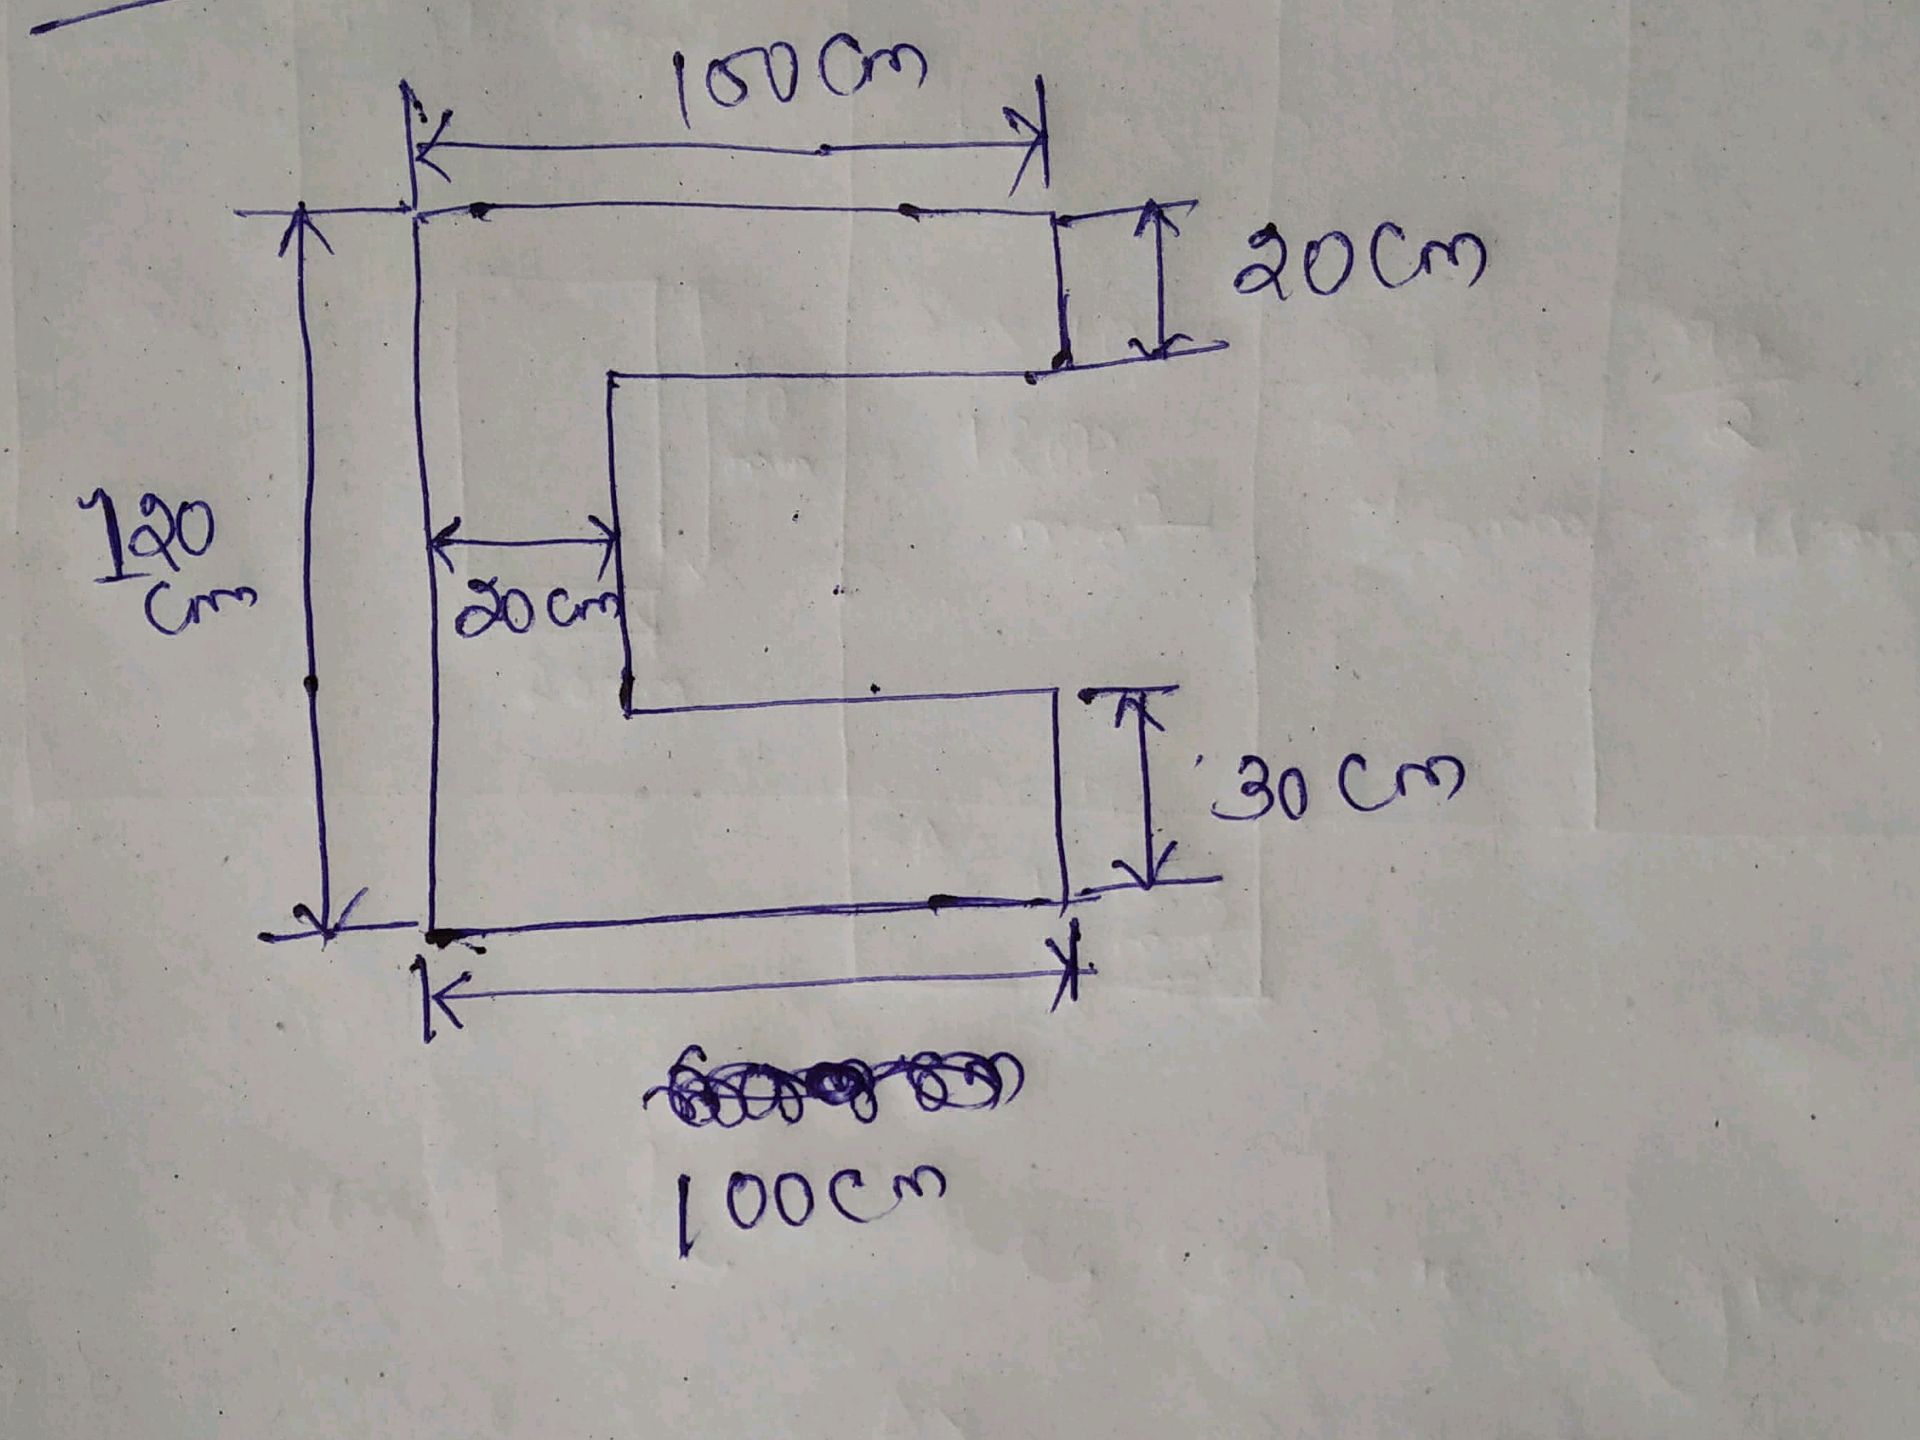 100cm
20cm
120
cm
20cm
30cm
100cm